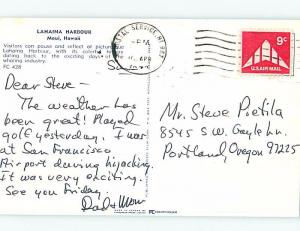 LAHAINA HARBOUR
Maui, Hawaii
Visitors can pause and reflect at
Lahaina Harbour, with its
back to the exciting days of
whaling industry.
FC 428
POSTAL SERVICE, HI 967
PM
APR
9c
U.S. AIR MAIL
Dear Steve-
The weather has
been great! Played
golf yesterday. I was
at San Francisco
Airport during hijacking.
It was very exciting.
See you Friday.
Dad & Mom
Mr. Steve Pietila
8545 S.W. Gayle Ln.
Portland, Oregon 97225